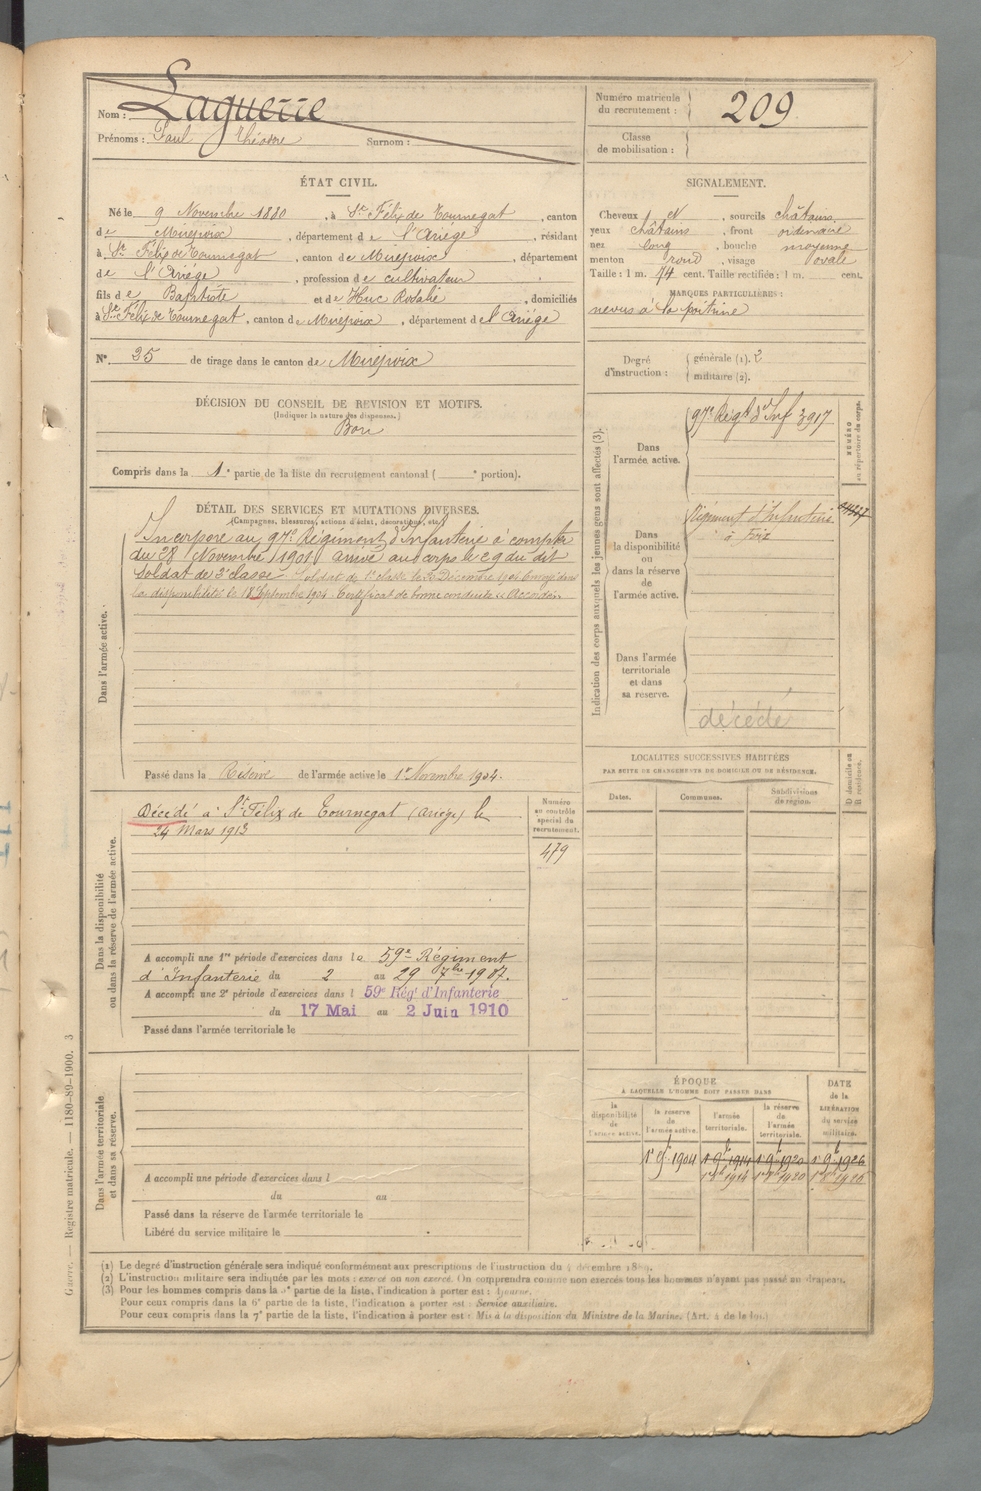 Nom : Laguerre
Prénoms : Paul Théodore Surnom :
Numéro matricule du recrutement : 209
Classe de mobilisation :
ÉTAT CIVIL.
Né le 9 Novembre 1880, à St Félix de Tournegat, canton
de Mirepoix, département de l'Ariége, résidant
à St Félix de Tournegat, canton de Mirepoix, département
de l'Ariége, profession de cultivateur
fils de Baptiste et de Huc Rosalie, domiciliés
à St Félix de Tournegat, canton de Mirepoix, département de l'Ariége
N° 25 de tirage dans le canton de Mirepoix
SIGNALEMENT.
Cheveux et, sourcils châtains
yeux châtains, front ordinaire
nez long, bouche moyenne
menton rond, visage ovale
Taille : 1 m. 74 cent. Taille rectifiée : 1 m. cent.
MARQUES PARTICULIÈRES :
nevus à la poitrine
Degré d'instruction : générale (1). 2
militaire (2).
DÉCISION DU CONSEIL DE REVISION ET MOTIFS.
(Indiquer la nature des dispenses.)
Bon
Compris dans la 1e partie de la liste du recrutement cantonal ( e portion).
DÉTAIL DES SERVICES ET MUTATIONS DIVERSES.
(Campagnes, blessures, actions d'éclat, décorations, etc.)
Dans l'armée active.
Incorporé au 97e Régiment d'Infanterie à compter
du 28 Novembre 1901 arrivé au corps le 29 du dit
soldat de 2e classe. Soldat de 1e classe le 30 Décembre 1902 Envoyé dans
la disponibilité le 18 Septembre 1904. Certificat de bonne conduite "Accordé".
Passé dans la Réserve de l'armée active le 1er Novembre 1904.
Indication des corps auxquels les jeunes gens sont affectés (3).
NUMÉRO au répertoire du corps.
Dans l'armée active.
97e Régt d'Inf 3917
Dans la disponibilité ou dans la réserve de l'armée active.
Régiment d'Infanterie
à Foix
Dans l'armée territoriale et dans sa réserve.
décédé
Dans la disponibilité ou dans la réserve de l'armée active.
Décédé à St Félix de Tournegat (Ariège) le
24 Mars 1913
Numéro au contrôle spécial du recrutement.
479
A accompli une 1re période d'exercices dans le 59e Régiment
d'Infanterie du 2 au 29 7bre 1907.
A accompli une 2e période d'exercices dans l 59e Rég' d'Infanterie
du 17 Mai au 2 Juin 1910
Passé dans l'armée territoriale le
LOCALITÉS SUCCESSIVES HABITÉES
PAR SUITE DE CHANGEMENTS DE DOMICILE OU DE RÉSIDENCE.
Dates. Communes. Subdivisions de région. D domicile ou R résidence.
Dans l'armée territoriale et dans sa réserve.
A accompli une période d'exercices dans l
du au
Passé dans la réserve de l'armée territoriale le
Libéré du service militaire le
ÉPOQUE
A LAQUELLE L'HOMME DOIT PASSER DANS
DATE de la LIBÉRATION du service militaire.
la disponibilité de l'armée active. la réserve de l'armée active. l'armée territoriale. la réserve de l'armée territoriale.
1er 9bre 1904 1er 9bre 1914 1er 9bre 1920 1er 9bre 1926
Guerre. — Registre matricule. — 1180-89-1900. 3
(1) Le degré d'instruction générale sera indiqué conformément aux prescriptions de l'instruction du 4 décembre 1889.
(2) L'instruction militaire sera indiquée par les mots : exercé ou non exercé. On comprendra comme non exercés tous les hommes n'ayant pas passé au drapeau.
(3) Pour les hommes compris dans la 5e partie de la liste, l'indication à porter est : Ajourné.
Pour ceux compris dans la 6e partie de la liste, l'indication à porter est : Service auxiliaire.
Pour ceux compris dans la 7e partie de la liste, l'indication à porter est : Mis à la disposition du Ministre de la Marine. (Art. 4 de la loi.)